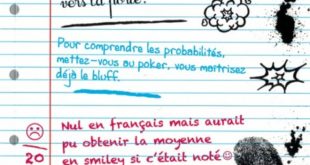 vers la porte.
Pour comprendre les probabilités,
mettez-vous au poker, vous maîtrisez
déjà le bluff.
Nul en français mais aurait
pu obtenir la moyenne
20
en smiley si c'était noté☺